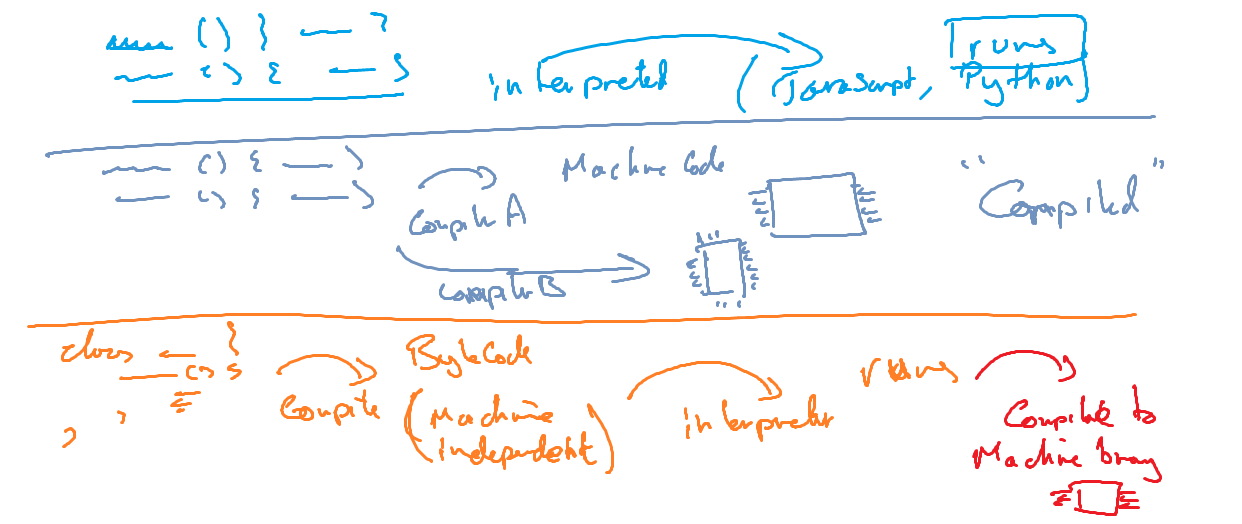 runs
interpreted (Javascript, Python)
Machine Code
Compiler A
"Compiled"
Compiler B
class
ByteCode
Compile
(Machine
independent)
interpreter
runs
Compile to
Machine binary